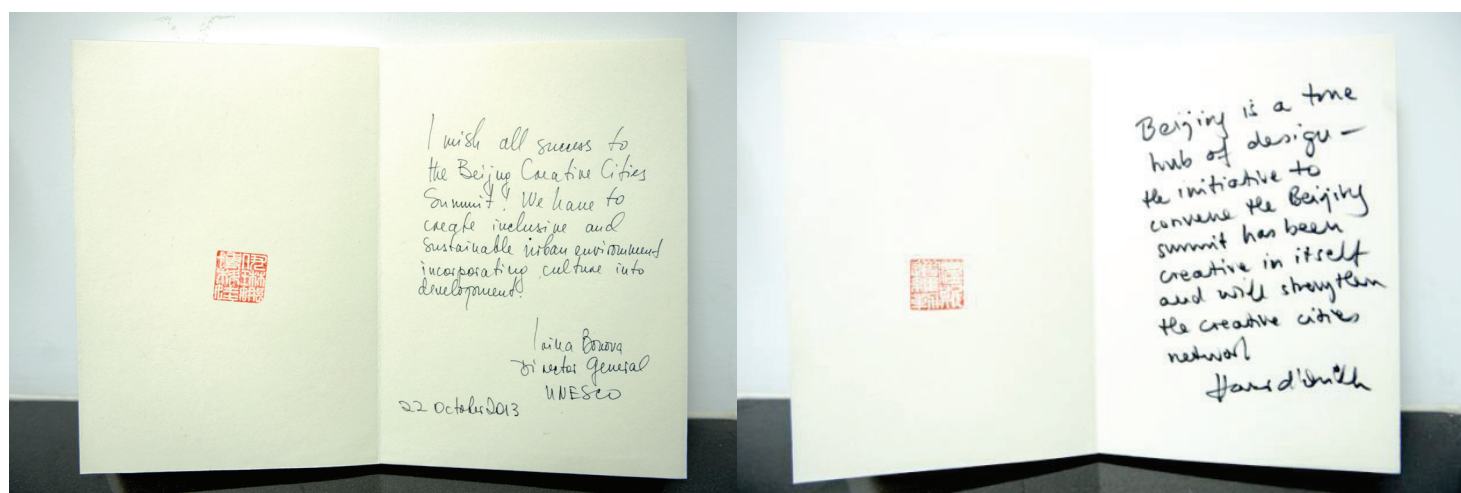 I wish all success to
the Beijing Creative Cities
Summit! We have to
create inclusive and
sustainable urban environment
incorporating culture into
development.
Irina Bokova
Director General
UNESCO
22 October 2013
Beijing is a true
hub of design —
the initiative to
convene the Beijing
summit has been
creative in itself
and will strengthen
the creative cities
network